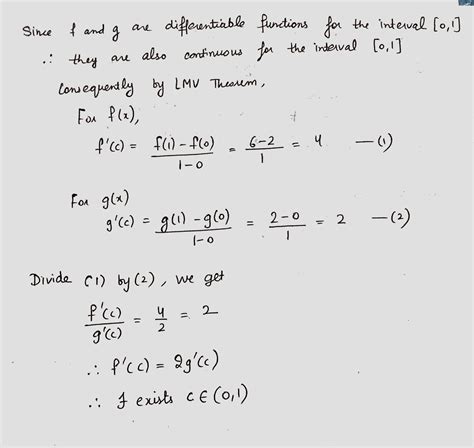 Since f and g are differentiable functions for the interval [0,1]
∴ they are also continuous for the interval [0,1]
Consequently by LMV Theorem,
For f(x),
f'(c) = f(1) - f(0) / 1-0 = 6-2 / 1 = 4 —(1)
For g(x)
g'(c) = g(1) - g(0) / 1-0 = 2-0 / 1 = 2 —(2)
Divide (1) by (2), we get
f'(c) / g'(c) = 4/2 = 2
∴ f'(c) = 2g'(c)
∴ exists c ∈ (0,1)